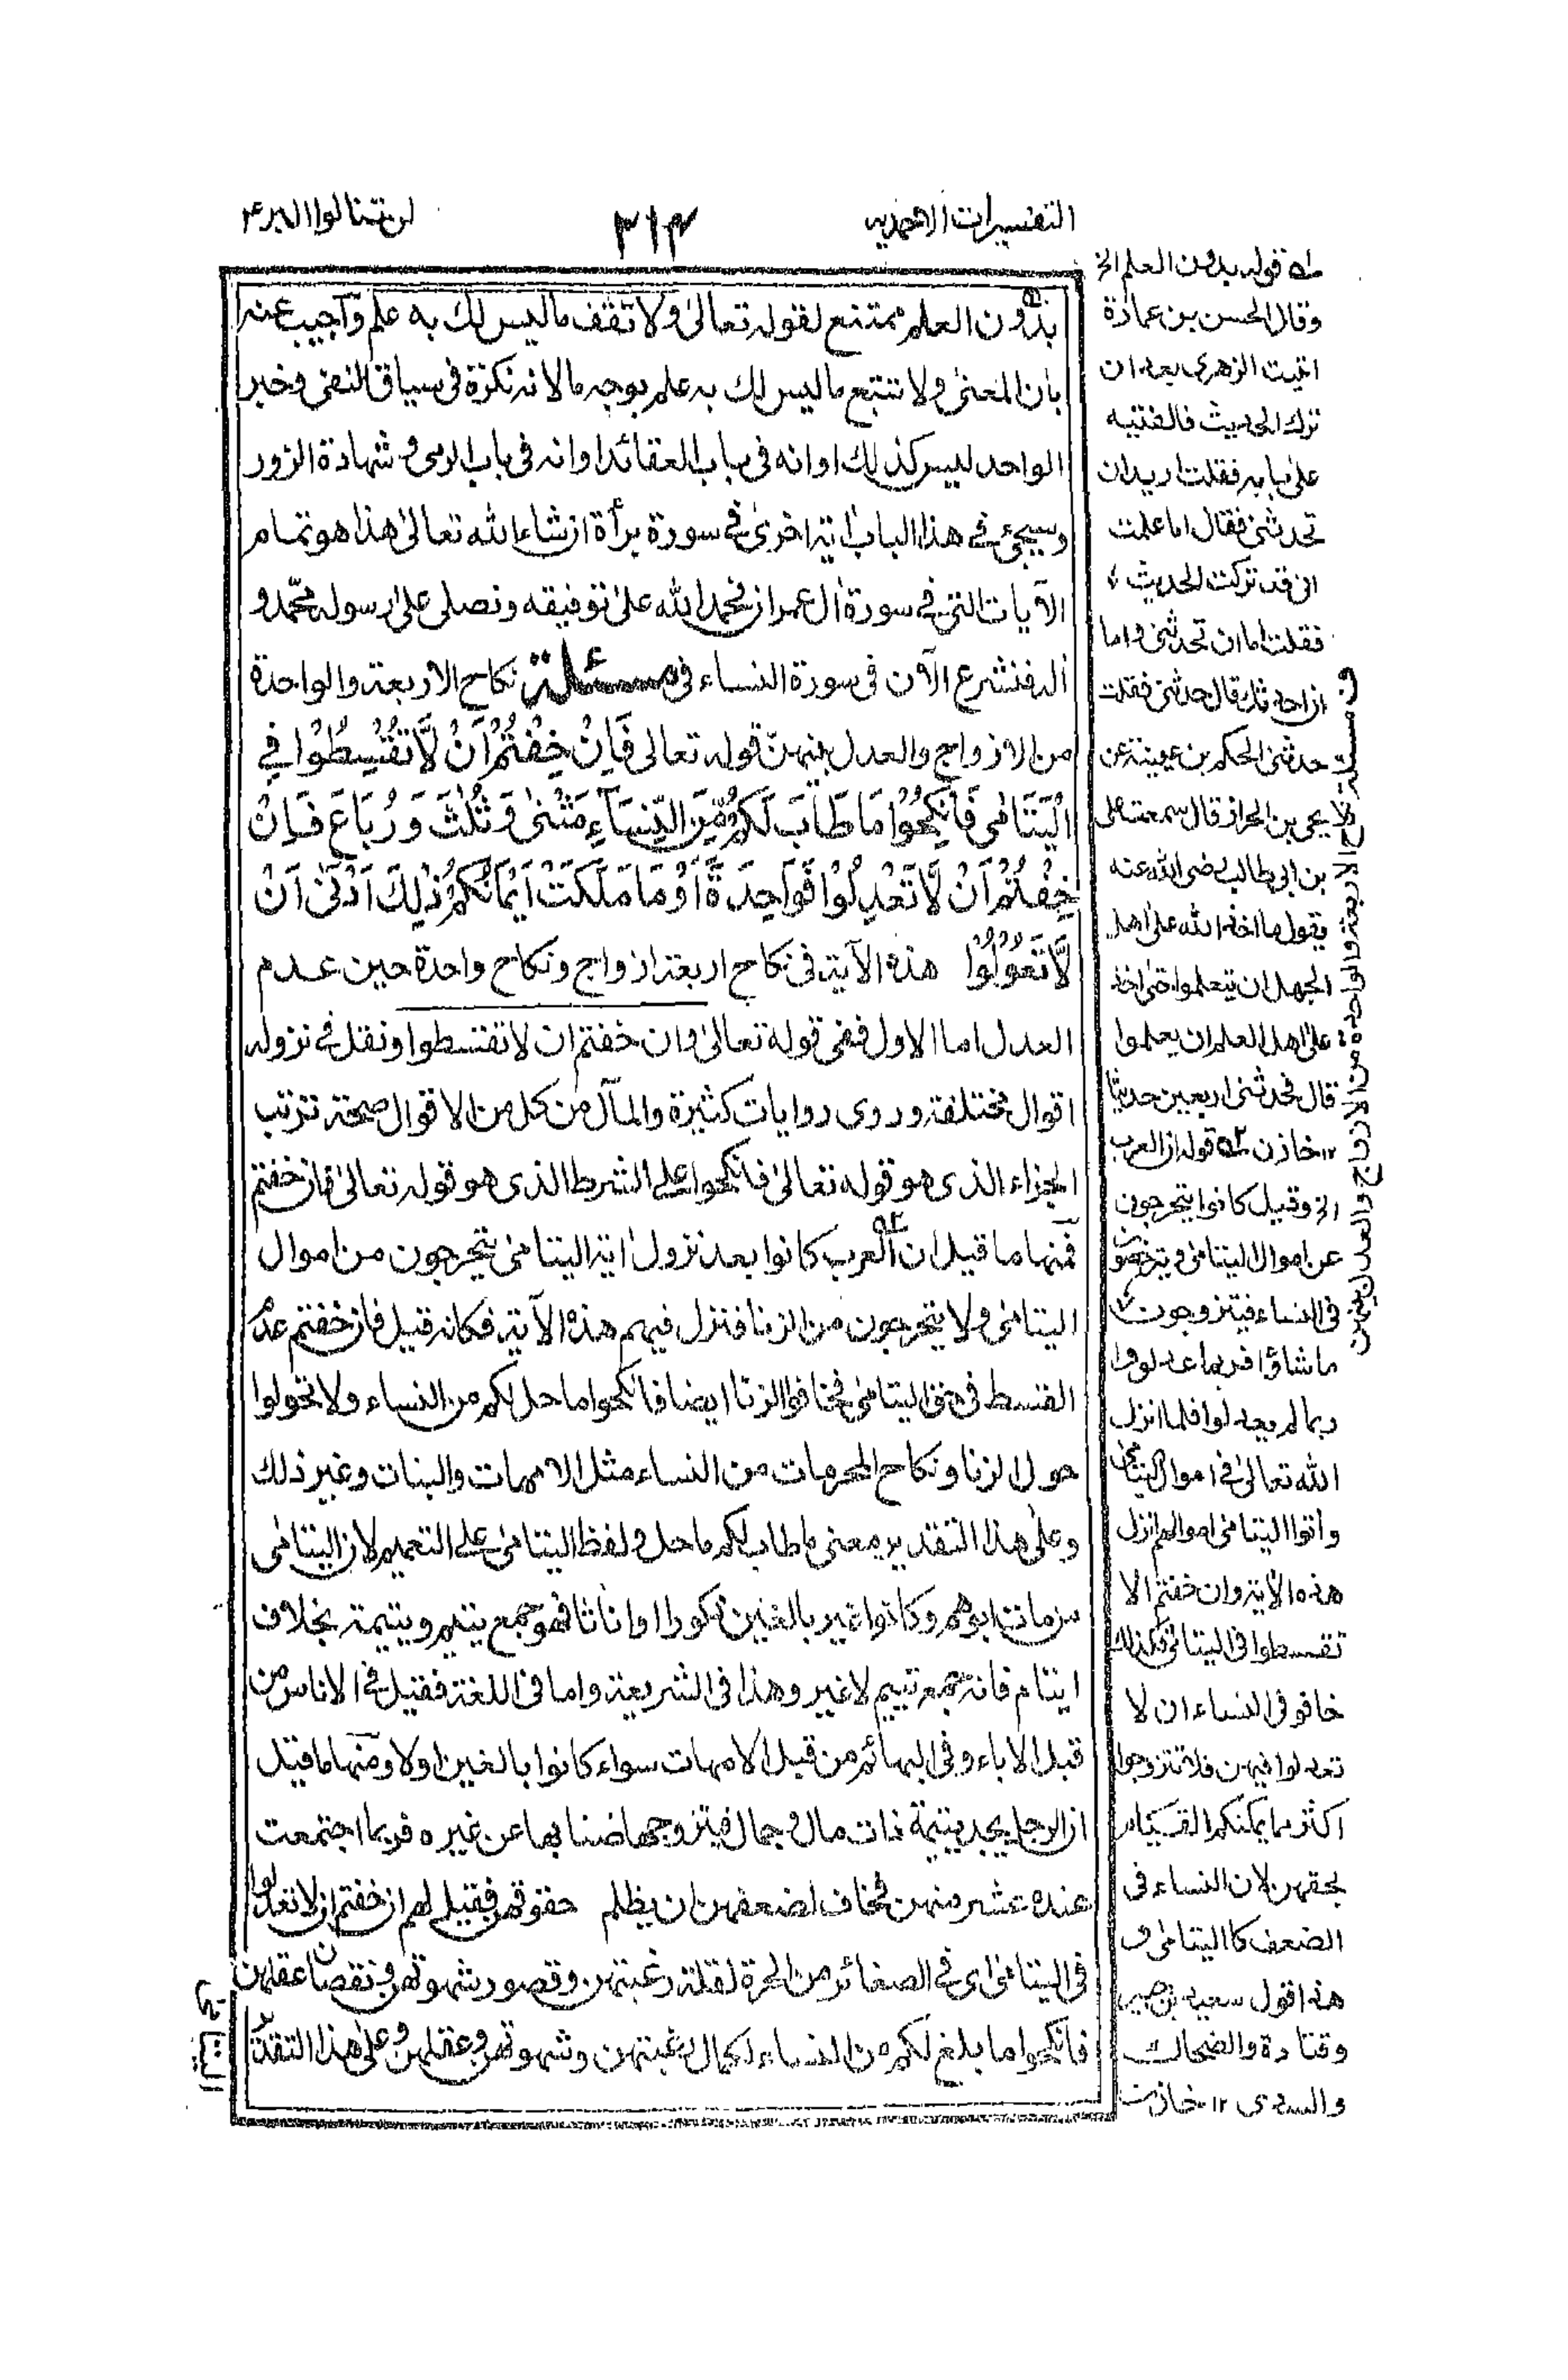 التفسيرات الاحمديه
٣١٤
لن تنالوا البر ٤
بدون العلم ممتنع لقوله تعالى ولا تقف ماليس لك به علم وأجيب عنه
بان المعنى ولا تتبع ماليس لك به علم بوجه ما لانه نكرة فى سياق النفى وخبر
الواحد ليس كذلك او انه فى باب العقائد او انه فى باب الرمى وشهادة الزور
وسيجىء فى هذا الباب اية اخرى فى سورة برأة انشاء الله تعالى هذا هو تمام
الآيات التى فى سورة ال عمران نحمد الله على توفيقه ونصلى على رسوله محمد و
أله فنشرع الآن فى سورة النساء فى مسئلة نكاح الاربعة والواحدة
من الازواج والعدل بينهن قوله تعالى فَاِنْ خِفْتُمْ اَنْ لَّا تُقْسِطُوْا فِي
الْيَتَامٰى فَانْكِحُوْا مَا طَابَ لَكُمْ مِّنَ النِّسَآءِ مَثْنٰى وَ ثُلٰثَ وَ رُبَاعَ فَاِنْ
خِفْتُمْ اَنْ لَّا تَعْدِلُوْا فَوَاحِدَةً اَوْ مَا مَلَكَتْ اَيْمَانُكُمْ ذٰلِكَ اَدْنٰى اَنْ
لَّا تَعُوْلُوْا هذه الآية فى نكاح اربعة ازواج ونكاح واحدة حين عدم
العدل اما الاول ففى قوله تعالى وان خفتم ان لا تقسطوا ونقل فى نزوله
اقوال مختلفة وروى روايات كثيرة والمآل من كل من الاقوال صحة ترتب
الجزاء الذى هو قوله تعالى فانكحوا على الشرط الذى هو قوله تعالى فان خفتم
فمنها ما قيل ان العرب كانوا بعد نزول اية اليتامى يتحرجون من اموال
اليتامى ولا يتحرجون من الزنا فنزل فيهم هذه الآية فكانه قيل فان خفتم عدم
القسط فى حق اليتامى فخافوا الزنا ايضا فانكحوا ما حل لكم من النساء ولا تحولوا
حول الزنا ونكاح المحرمات من النساء مثل الامهات والبنات وغير ذلك
وعلى هذا التقدير معنى ما طاب لكم ما حل ولفظ اليتامى على التعميم لان اليتامى
من مات ابوهم وكانوا غير بالغين ذكورا او اناثا فهو جمع يتيم ويتيمة بخلاف
ايتام فانه جمع يتيم لا غير وهذا فى الشريعة واما فى اللغة فقيل فى الاناس من
قبل الاباء وفى البهائم من قبل الامهات سواء كانوا بالغين اولا ومنها ما قيل
ان الرجل يجد يتيمة ذات مال وجمال فيتزوجها ضنا بها عن غيره فربما اجتمعت
عنده عشر منهن فخاف لضعفهن ان يظلم حقوقهن فقيل لهم ان خفتم ان لا تعدلوا
فى اليتامى اى فى الصغائر من الحرة لقلة رغبتهن وقصور شهوتهن ونقصان عقلهن
فانكحوا ما بلغ لكم من النساء لكمال رغبتهن وشهوتهن وعقلهن وعلى هذا التقد
له قوله بدون العلم الخ
وقال الحسن بن عمارة
اتيت الزهرى بعد ان
ترك الحديث فالفتيه
على بابه فقلت اريد ان
تحدثنى فقال اما علمت
انى قد تركت الحديث
فقلت اما ان تحدثنى واما
ان احدثك قال حدثنى فقلت
حدثنى الحكم بن عيينة عن
يحى بن الجزار قال سمعت على
بن ابى طالب رضى الله عنه
يقول ما اخذ الله على اهل
الجهل ان يتعلموا حتى اخذ
على اهل العلم ان يعلموا
قال فحدثنى اربعين حديثا
١٢ خازن ٢ه قوله ان العرب
الخ وقيل كانوا يتحرجون
عن اموال اليتامى ويترخصون
فى النساء فيتزوجون
ما شاؤا فربما عدلوا و
ربما لم يعدلوا فلما انزل
الله تعالى فى اموال اليتامى
واتوا اليتامى اموالهم انزل
هذه الآية وان خفتم الا
تقسطوا فى اليتامى فكذلك
خافو فى النساء ان لا
تعدلوا فيهن فلا تتزوجوا
اكثر مما يمكنكم القيام
بحقهن لان النساء فى
الضعف كاليتامى و
هذا قول سعيد بن جبير
وقتادة والضحاك
والسدى ١٢ خازن
ف مسئلة نكاح الاربعة والواحدة من الازواج والعدل بينهن